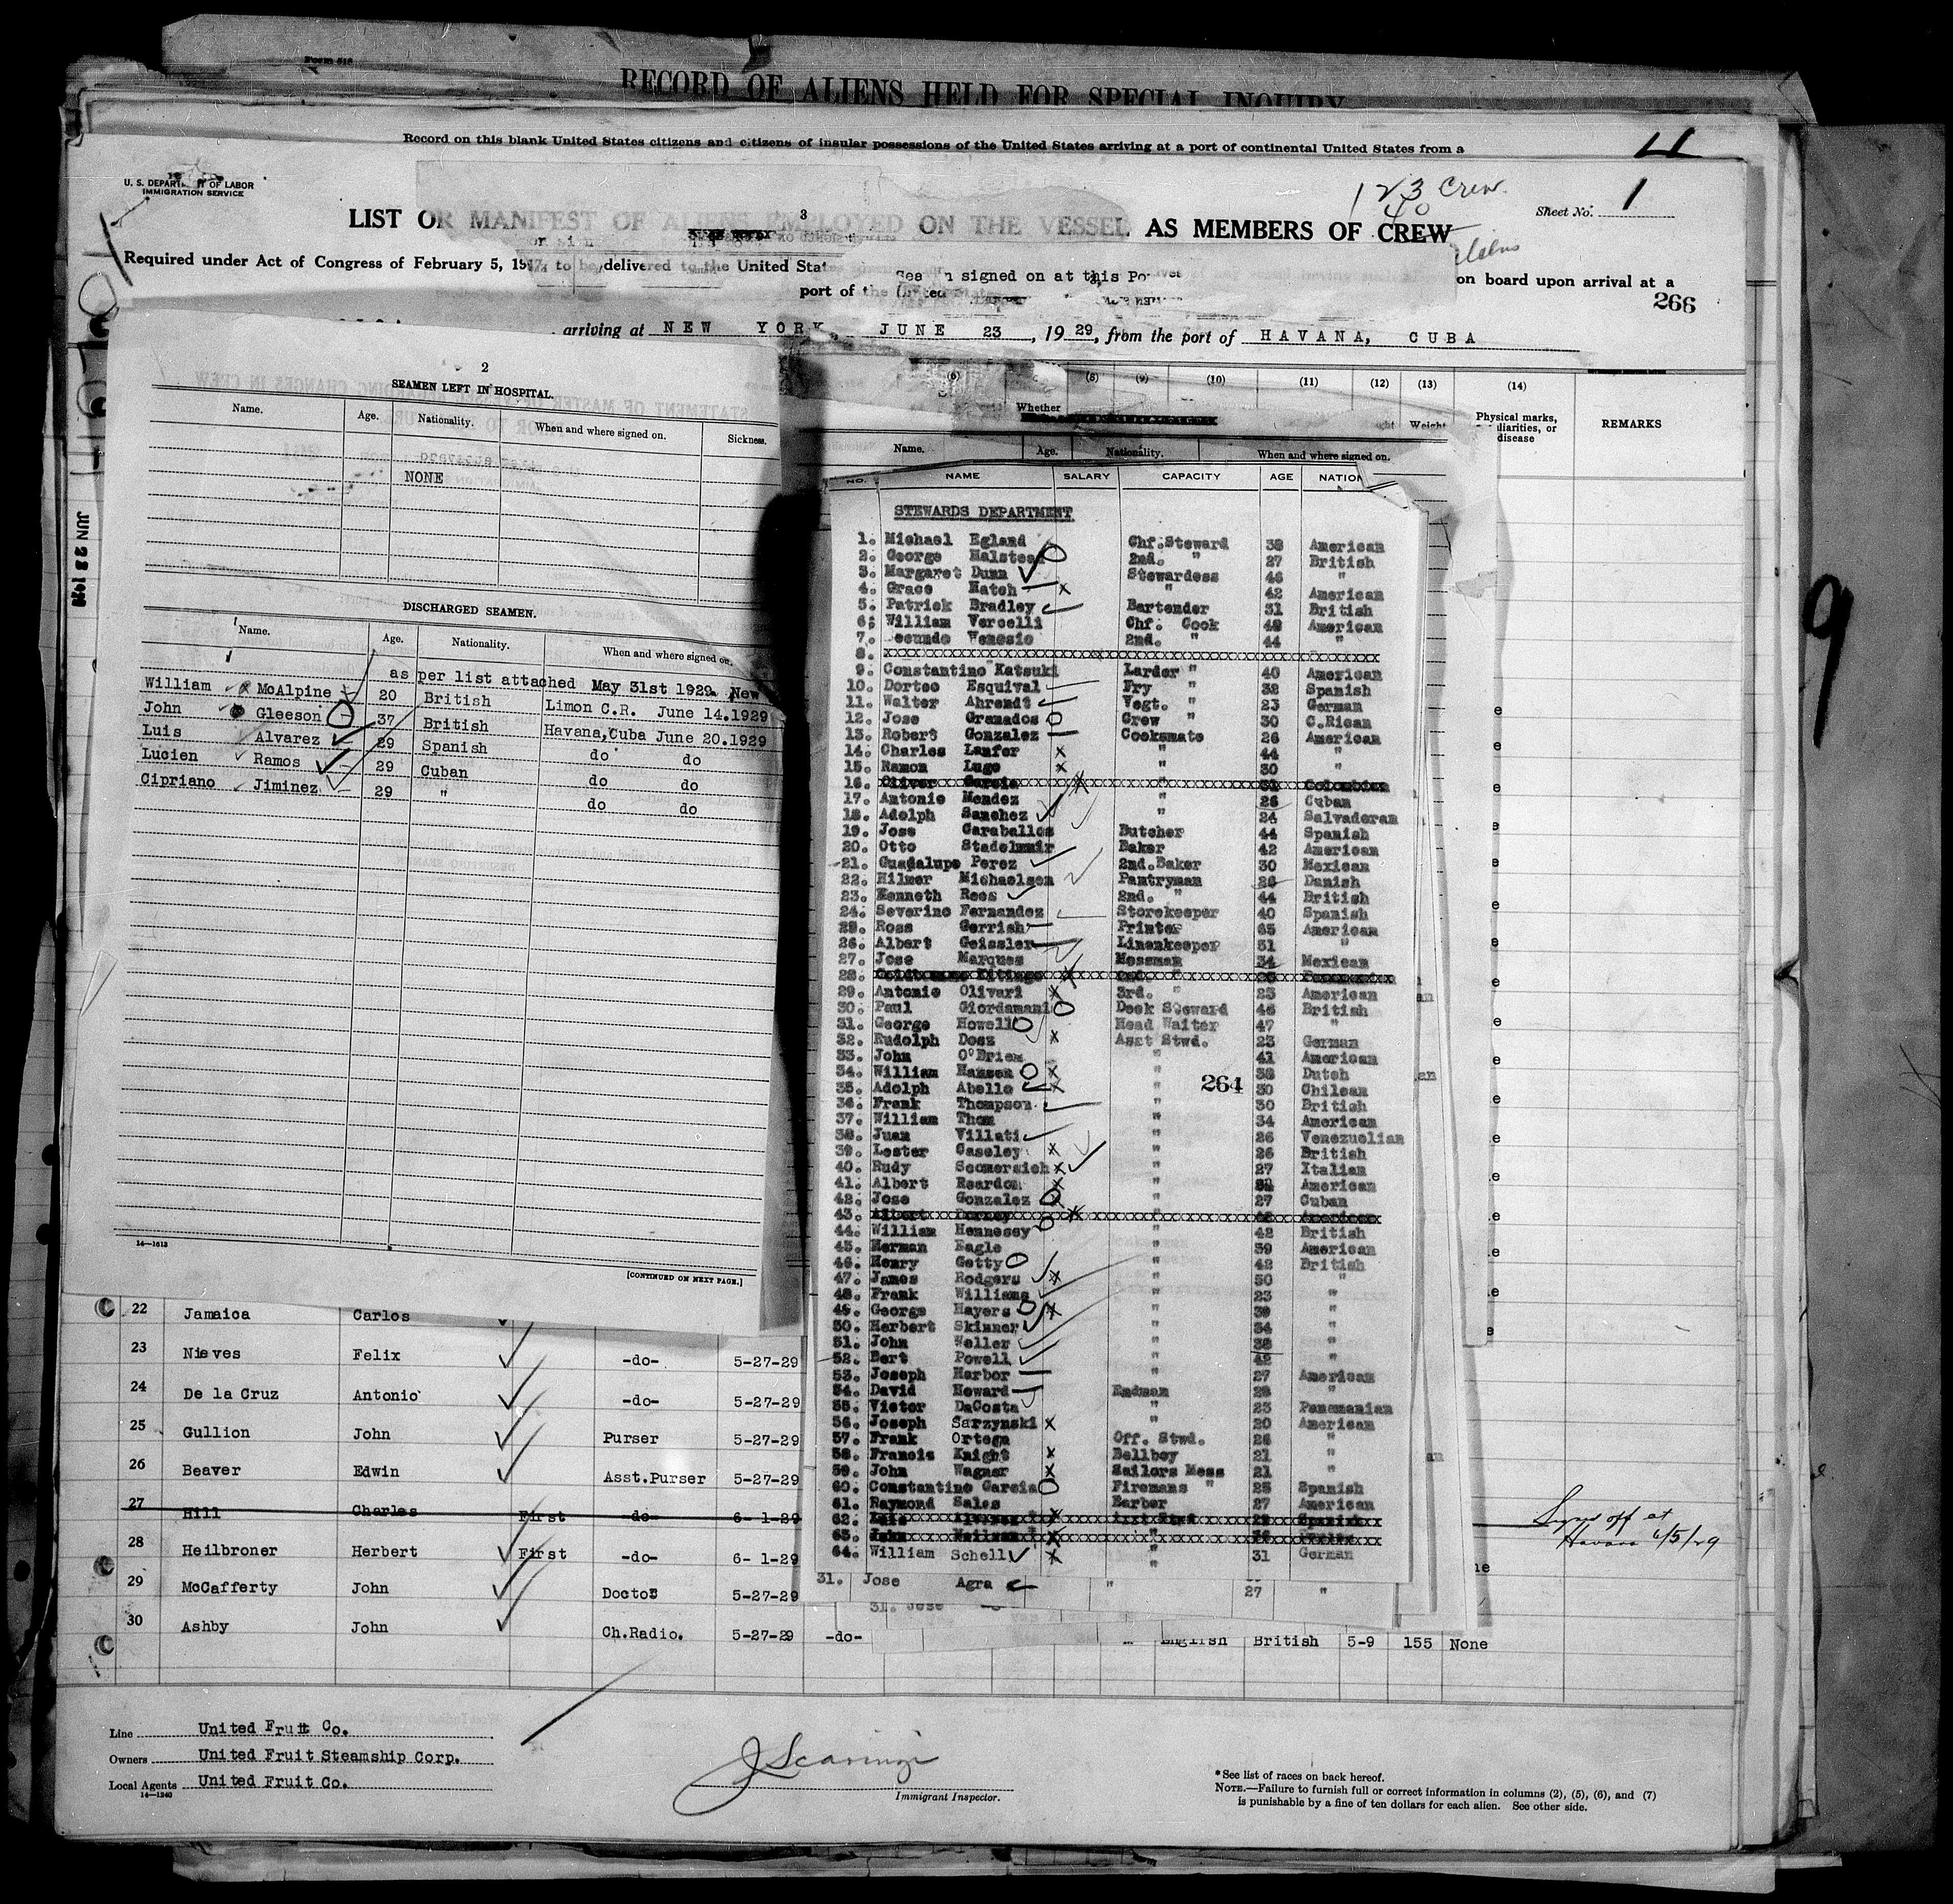 Form 518
RECORD OF ALIENS HELD FOR SPECIAL INQUIRY
Record on this blank United States citizens and citizens of insular possessions of the United States arriving at a port of continental United States from a
U. S. DEPARTMENT OF LABOR
IMMIGRATION SERVICE
123 Crew
40
Aliens
Sheet No. 1
3
LIST OR MANIFEST OF ALIENS EMPLOYED ON THE VESSEL AS MEMBERS OF CREW
Required under Act of Congress of February 5, 1917, to be delivered to the United Stat
Seamen signed on at this Por
on board upon arrival at a
port of the United
266
arriving at NEW YORK, JUNE 23, 1929, from the port of HAVANA, CUBA
JUN 23 1929
(6) (8) (9) (10) (11) (12) (13) (14)
Whether
Weight
Physical marks, peculiarities, or disease
REMARKS
Name. Age. Nationality. When and where signed on.
2
SEAMEN LEFT IN HOSPITAL.
Name. Age. Nationality. When and where signed on. Sickness.
NONE
DISCHARGED SEAMEN.
Name. Age. Nationality. When and where signed on.
as per list attached May 31st 1929. New
William McAlpine 20 British Limon C.R. June 14.1929
John Gleeson 37 British Havana,Cuba June 20.1929
Luis Alvarez 29 Spanish do do
Lucien Ramos 29 Cuban do do
Cipriano Jiminez 29 " do do
14—1613
[CONTINUED ON NEXT PAGE.]
NO. NAME SALARY CAPACITY AGE NATION
STEWARDS DEPARTMENT
1. Michael Egland Chf.Steward 38 American
2. George Halstead 2nd. " 27 British
3. Margaret Dunn Stewardess 46 "
4. Grace Hatch " 42 American
5. Patrick Bradley Bartender 31 British
6. William Vercelli Chf. Cook 48 American
7. Secundo Venesio 2nd. " 44 "
8. xxxxxxxxxxxxxxxxxxxxxxxxxxxxxxxxxxxx
9. Constantino Katsuki Larder " 40 American
10. Dorteo Esquival Fry " 32 Spanish
11. Walter Ahrendt Vegt. " 23 German
12. Jose Granados Crew " 30 C.Rican
13. Robert Gonzalez Cooksmate 26 American
14. Charles Laufer " 44 "
15. Ramon Lugo " 30 "
16. Oliver Garcia 31 Colombian
17. Antonio Mendez " 26 Cuban
18. Adolph Sanchez " 24 Salvadoran
19. Jose Caraballos Butcher 44 Spanish
20. Otto Stadelmair Baker 42 American
21. Guadalupe Perez 2nd.Baker 30 Mexican
22. Hilmer Michaelsen Pantryman 26 Danish
23. Kenneth Rees 2nd. " 44 British
24. Severino Fernandez Storekeeper 40 Spanish
25. Ross Gerrish Printer 65 American
26. Albert Geissler Linenkeeper 51 "
27. Jose Marques Messman 34 Mexican
28.
29. Antonio Olivari 3rd. " 23 American
30. Paul Giordamani Deck Steward 46 British
31. George Howell Head Waiter 47 "
32. Rudolph Dosz Asst Stwd. 23 German
33. John O'Brien " 41 American
34. William Hansen " 38 Dutch
35. Adolph Abello " 30 Chilean
36. Frank Thompson " 30 British
37. William Thom " 34 American
38. Juan Villati " 26 Venezuelian
39. Lester Caseley " 26 British
40. Rudy Scomersich " 27 Italian
41. Albert Reardon " American
42. Jose Gonzalez " 27 Cuban
43. Albert American
44. William Hennessy " 42 British
45. Herman Eagle " 39 American
46. Henry Getty " 42 British
47. James Rodgers " 50 "
48. Frank Williams " 23 "
49. George Hayers " "
50. Herbert Skinner " 34 "
51. John Weller " 38 "
52. Bert Powell " 42 "
53. Joseph Harbor " 27 American
54. David Howard Endman 28 "
55. Victor DaCosta " 23 Panamanian
56. Joseph Sarzynski " 20 American
57. Frank Ortega Off. Stwd. 26 "
58. Francis Knight Bellboy 21 "
59. John Wagner Sailors Mess 21 "
60. Constantino Garcia Firemans " 25 Spanish
61. Raymond Sales Barber 27 American
62. Spanish
63. John
64. William Schell " 31 German
264
31. Jose Agra " 27 "
31. Jose
22 Jamaica Carlos
23 Nieves Felix -do- 5-27-29
24 De la Cruz Antonio -do- 5-27-29
25 Gullion John Purser 5-27-29
26 Beaver Edwin Asst.Purser 5-27-29
27 Hill Charles First -do- 6- 1-29 Signed off at Havana 6/5/29
28 Heilbroner Herbert First -do- 6- 1-29
29 McCafferty John Doctor 5-27-29
30 Ashby John Ch.Radio. 5-27-29 -do- English British 5-9 155 None
9
Line United Fruit Co.
Owners United Fruit Steamship Corp.
Local Agents United Fruit Co.
14—1240
J Scaringi
Immigrant Inspector.
* See list of races on back hereof.
NOTE.—Failure to furnish full or correct information in columns (2), (5), (6), and (7)
is punishable by a fine of ten dollars for each alien. See other side.